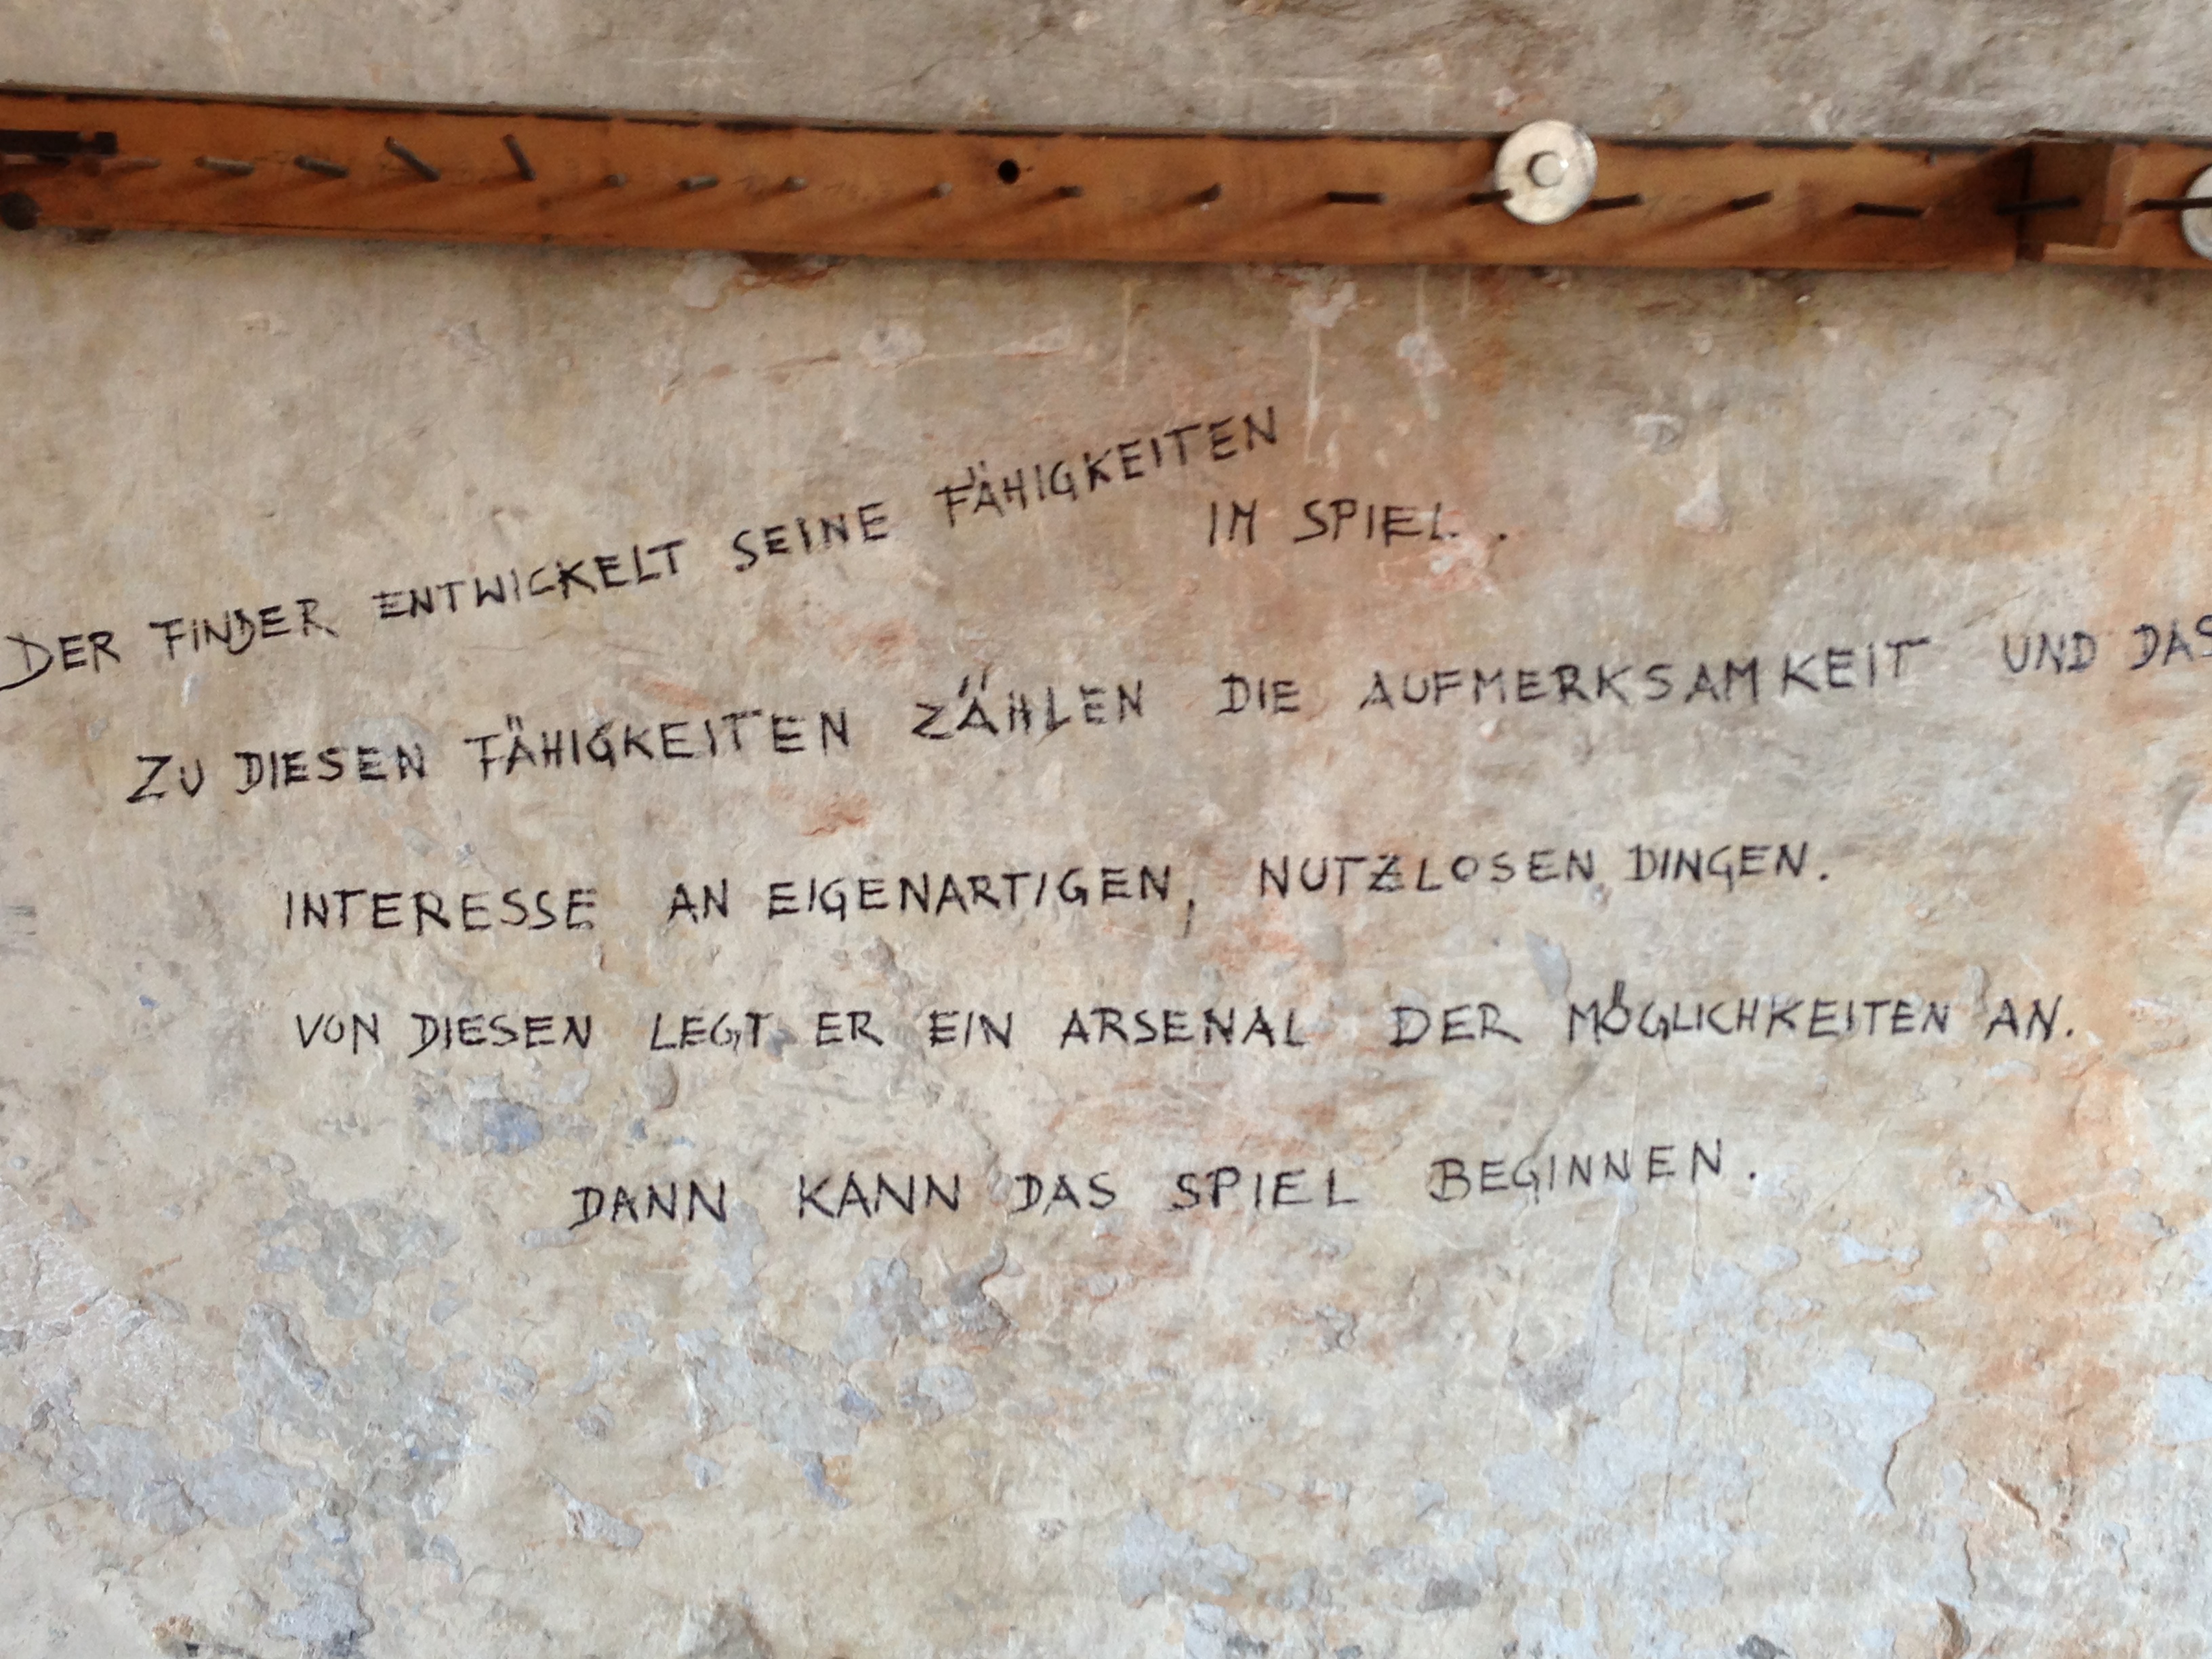 DER FINDER ENTWICKELT SEINE FÄHIGKEITEN
IM SPIEL.
ZU DIESEN FÄHIGKEITEN ZÄHLEN DIE AUFMERKSAMKEIT UND DAS
INTERESSE AN EIGENARTIGEN, NUTZLOSEN DINGEN.
VON DIESEN LEGT ER EIN ARSENAL DER MÖGLICHKEITEN AN.
DANN KANN DAS SPIEL BEGINNEN.